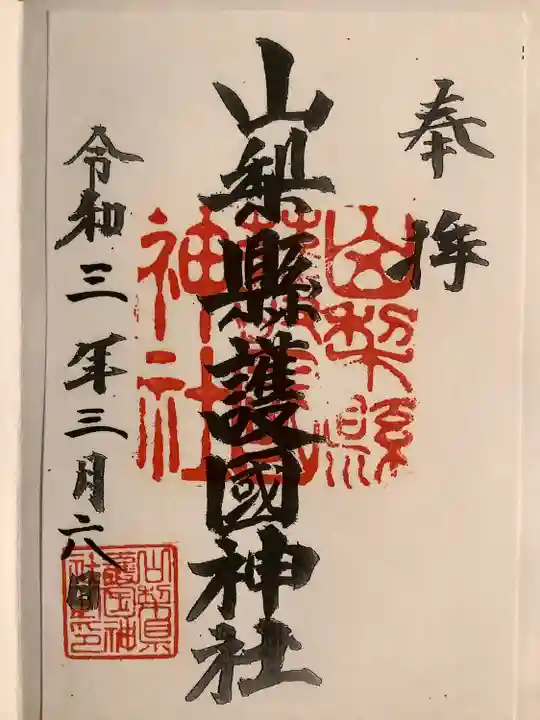 奉拝
山梨縣護國神社
山梨縣護國神社
令和三年三月六日
山梨県護国神社之印